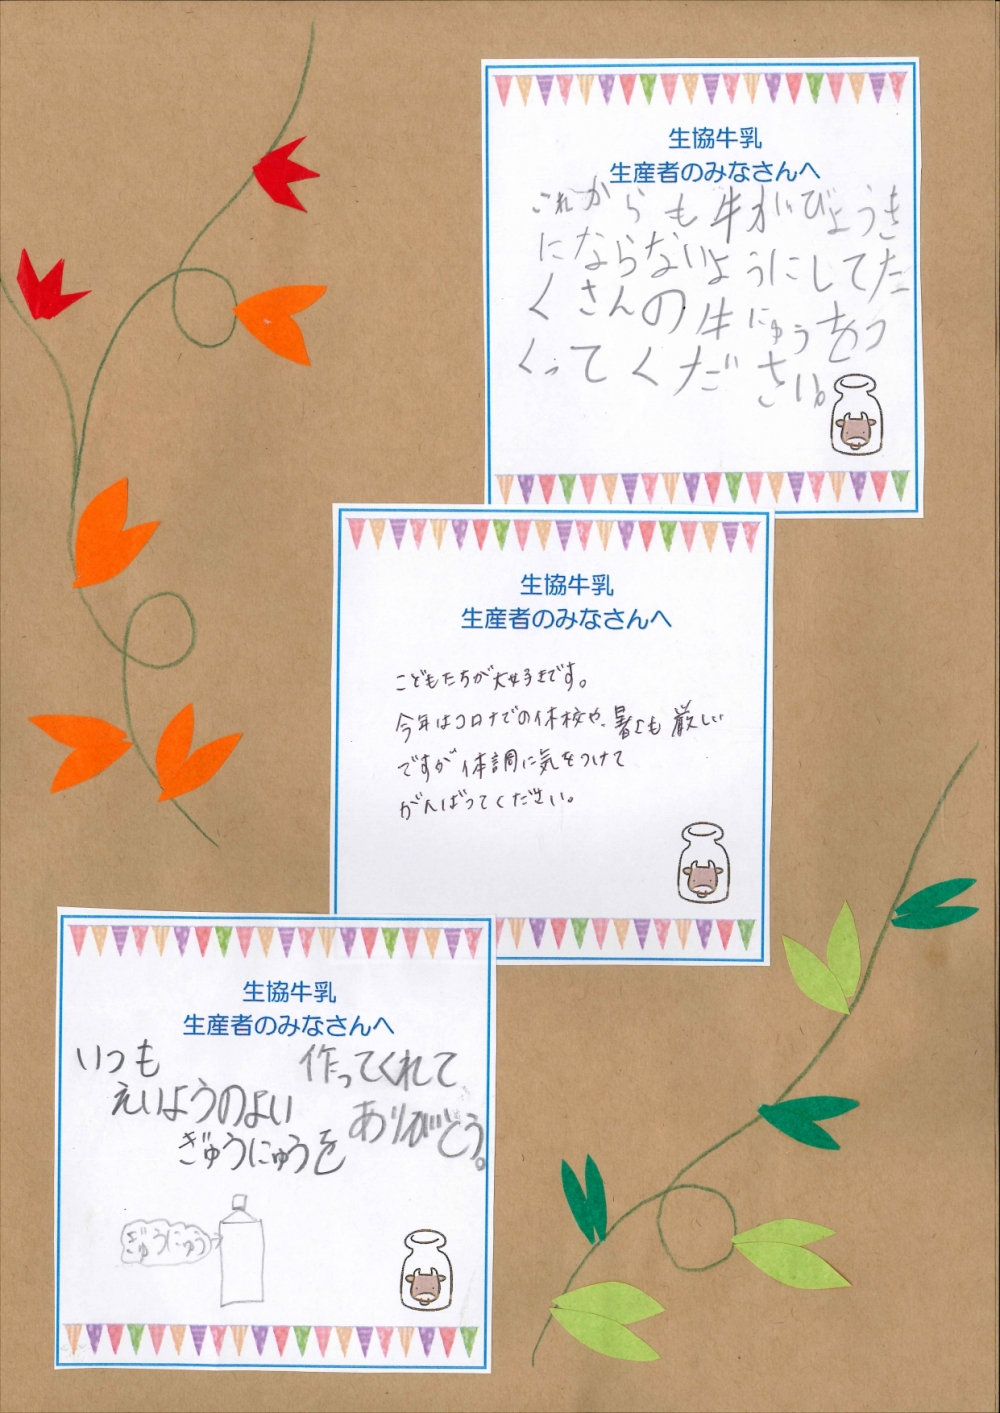 生協牛乳
生産者のみなさんへ
これからも牛がびょうき
にならないようにしてた
くさんの牛にゅうをつ
くってください。
生協牛乳
生産者のみなさんへ
こどもたちが大好きです。
今年はコロナでの休校や、暑くも厳しい
ですが体調に気をつけて
がんばってください。
生協牛乳
生産者のみなさんへ
いつも
えいようのよい
ぎゅうにゅうを
作ってくれて
ありがとう。
ぎゅうにゅう